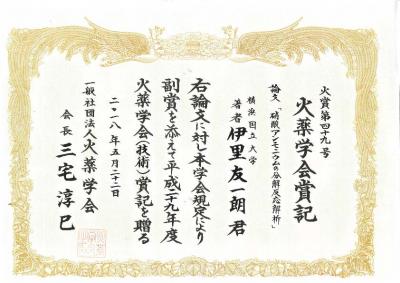 火賞第四十九号
火薬学会賞記
論文、「硝酸アンモニウムの分解反応解析」
横浜国立大学
著者 伊里友一朗君
右論文に対し本学会規定により
副賞を添えて平成二十九年度
火薬学会(技術)賞記を贈る
二〇一八年五月二十二日
一般社団法人火薬学会
会長 三宅淳巳